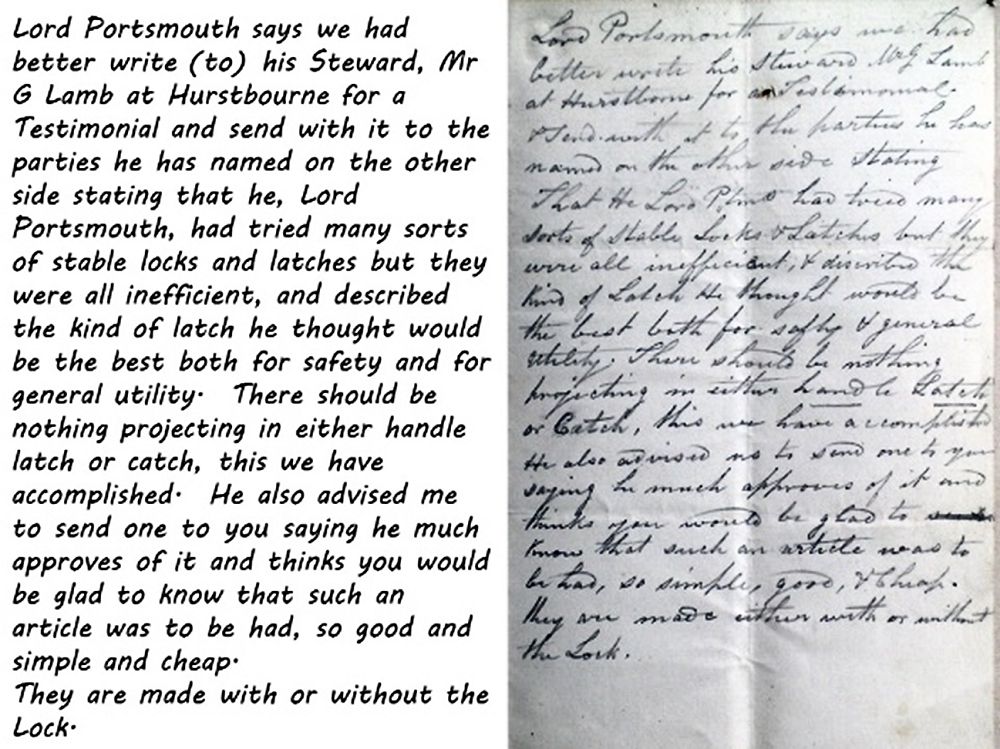 Lord Portsmouth says we had
better write (to) his Steward, Mr
G Lamb at Hurstbourne for a
Testimonial and send with it to the
parties he has named on the other
side stating that he, Lord
Portsmouth, had tried many sorts
of stable locks and latches but they
were all inefficient, and described
the kind of latch he thought would
be the best both for safety and for
general utility. There should be
nothing projecting in either handle
latch or catch, this we have
accomplished. He also advised me
to send one to you saying he much
approves of it and thinks you would
be glad to know that such an
article was to be had, so good and
simple and cheap.
They are made with or without the
Lock.
Lord Portsmouth says we had
better write his Steward Mr G Lamb
at Hurstborne for a Testimonial.
& Send with it to the parties he has
named on the other side stating
That He Lord Ptmo had tried many
sorts of Stable Locks & Latches but they
were all inefficient, & discribed the
Kind of Latch He thought would be
the best both for safty & general
utility. There should be nothing
projecting in either handle Latch
or Catch, this we have accomplished
He also advised us to send one to you
saying he much approves of it and
thinks you would be glad to
Know that such an article was to
be had, so simple, good, & Cheap.
they are made either with or without
the Lock.